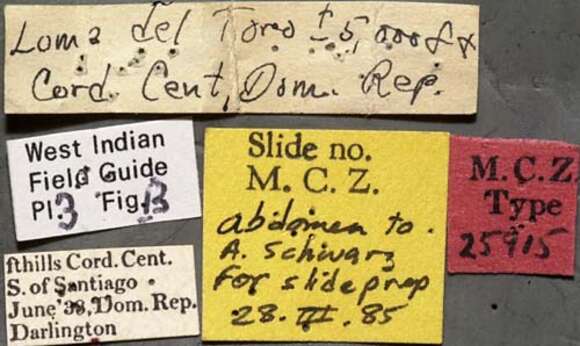 Loma del Toro ± 5,000 ft
Cord. Cent, Dom. Rep.
West Indian
Field Guide
Pl 3 Fig 13
fthills Cord. Cent.
S. of Santiago
June '38, Dom. Rep.
Darlington
Slide no.
M. C. Z.
abdomen to
A. Schwarz
for slide prep
28. III. 85
M. C. Z.
Type
25915